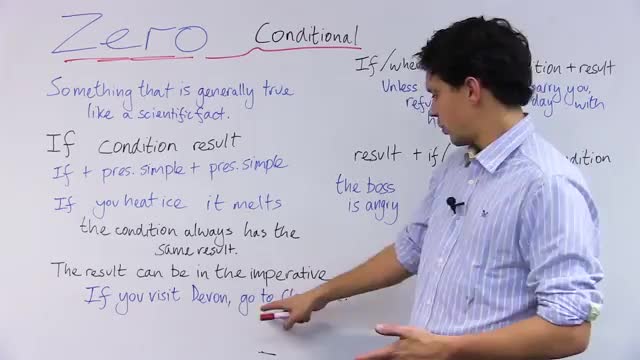 Zero Conditional
Something that is generally true
like a scientific fact.
If condition result
If + pres. simple + pres. simple
If you heat ice it melts
the condition always has the
same result.
The result can be in the imperative
If you visit Devon, go to
If/whe
tion + result
Unless
arry you,
refu
day with
result + if/
ndition
the boss
is angry